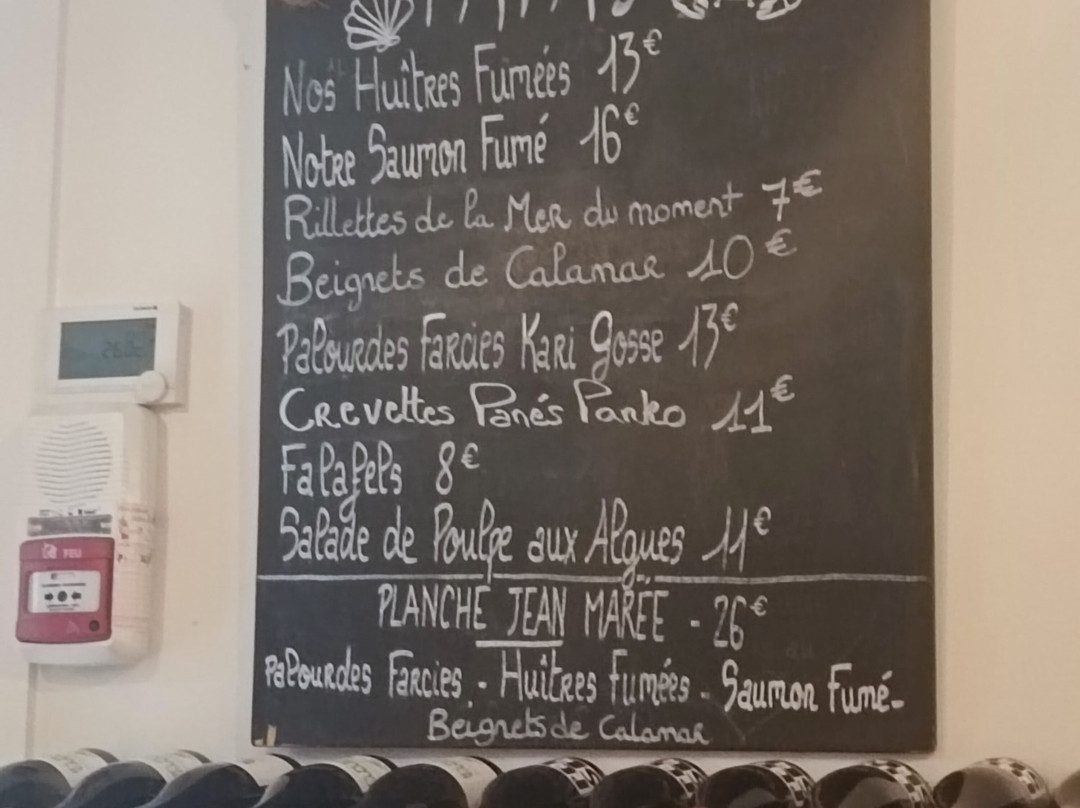 Nos Huîtres Fumées 13€
Notre Saumon Fumé 16€
Rillettes de la Mer du moment 7€
Beignets de Calamar 10€
Palourdes Farcies Kari Gosse 13€
Crevettes Panés Panko 11€
Falafels 8€
Salade de Poulpe aux Algues 11€
PLANCHE JEAN MARÉE - 26€
Palourdes Farcies - Huîtres Fumées - Saumon Fumé -
Beignets de Calamar
FEU